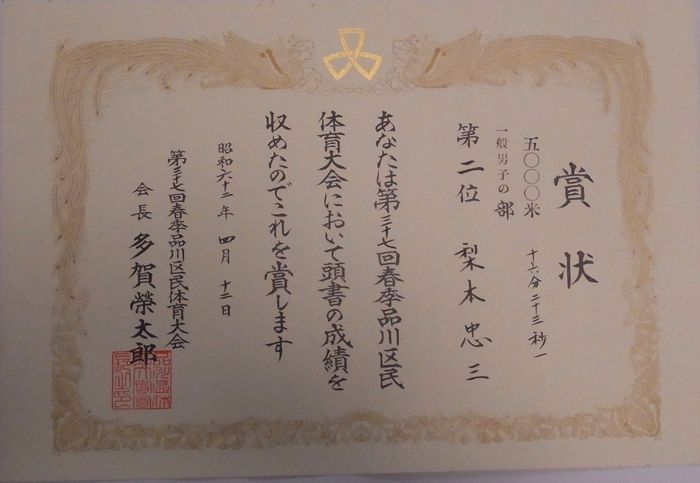 賞状
五〇〇〇米 十六分二十三秒一
一般男子の部
第二位 梨本忠三
あなたは第三十七回春季品川区民
体育大会において頭書の成績を
収めたのでこれを賞します
昭和六十二年 四月 十二日
第三十七回春季品川区民体育大会
会長 多賀榮太郎